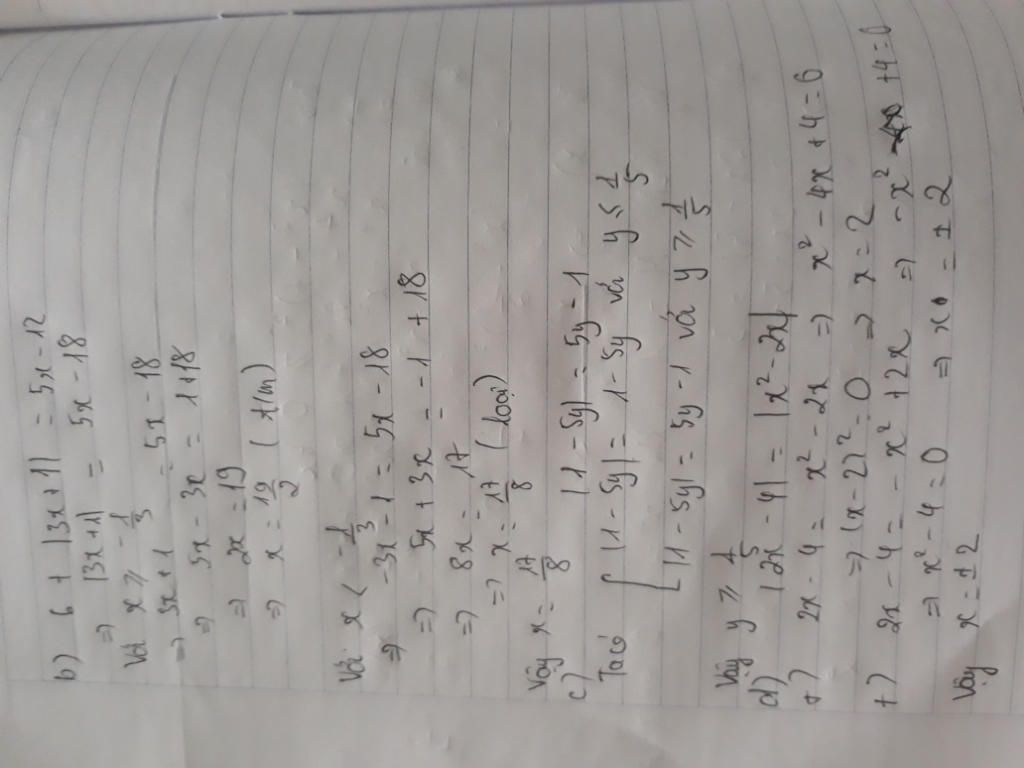 b) 6 + |3x + 1| = 5x - 12
=> |3x + 1| = 5x - 18
Với x ≥ -1/3
=> 3x + 1 = 5x - 18
=> 5x - 3x = 1 + 18
=> 2x = 19
=> x = 19/2 (t/m)
Với x < -1/3
=> -3x - 1 = 5x - 18
=> 5x + 3x = -1 + 18
=> 8x = 17
=> x = 17/8 (loại)
Vậy x = 17/8
c) |1 - 5y| = 5y - 1
Ta có [ |1 - 5y| = 1 - 5y và y ≤ 1/5
[ |1 - 5y| = 5y - 1 và y ≥ 1/5
Vậy y ≥ 1/5
d) |2x - 4| = |x² - 2x|
+) 2x - 4 = x² - 2x => x² - 4x + 4 = 0
=> (x - 2)² = 0 => x = 2
+) 2x - 4 = -x² + 2x => -x² + 4 = 0
=> x² - 4 = 0 => x = ± 2
Vậy x = ± 2